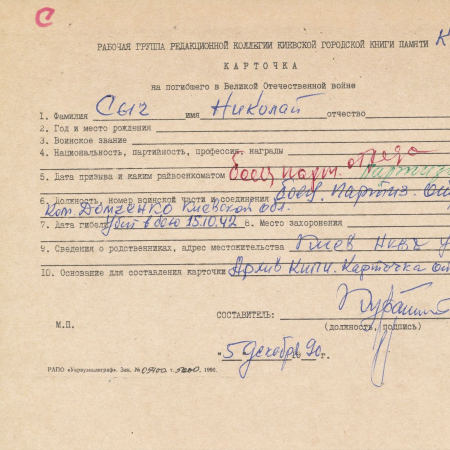 С
РАБОЧАЯ ГРУППА РЕДАКЦИОННОЙ КОЛЛЕГИИ КИЕВСКОЙ ГОРОДСКОЙ КНИГИ ПАМЯТИ К
КАРТОЧКА
на погибшего в Великой Отечественной войне
1. Фамилия Сыч имя Николай отчество
2. Год и место рождения
3. Воинское звание
4. Национальность, партийность, профессия, награды
5. Дата призыва и каким райвоенкоматом боец парт. отряда
6. Должность, номер воинской части и соединения боец. Партиз. От
Ком. Домченко Киевской обл.
7. Дата гибели Убит в бою 15.10.42 8. Место захоронения
9. Сведения о родственниках, адрес местожительства Киев
10. Основание для составления карточки Архив Карточка
СОСТАВИТЕЛЬ:
(должность, подпись)
М.П.
"5" декабря 90 г.
РАПО «Укрвузполиграф». Зак. № т. 5000. 1990.